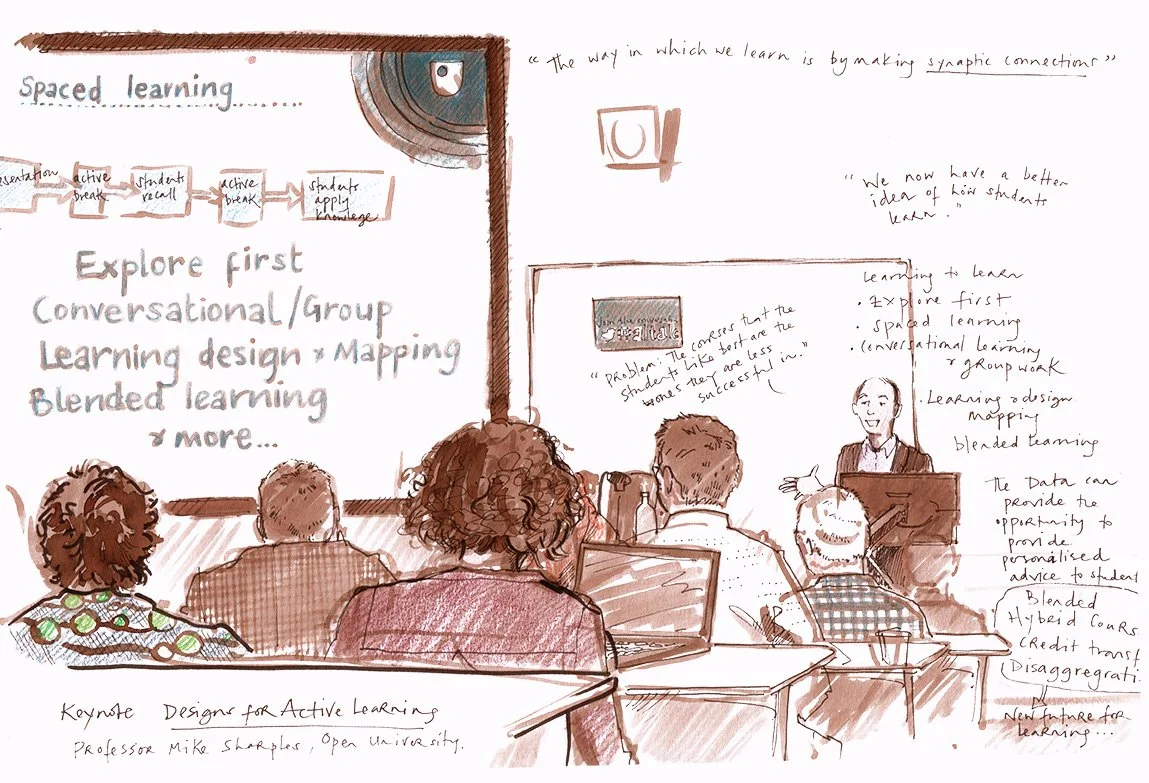 Spaced learning
esentation
active
break
students
recall
active
break
students
apply
knowlege
Explore first
Conversational/Group
Learning design & Mapping
Blended learning
& more...
"The way in which we learn is by making synaptic connections"
"We now have a better
idea of how students
learn."
#altalc
"Problem: The courses that the
students like best are the
ones they are less
successful in."
Learning to learn
• Explore first
• Spaced learning
• Conversational learning
& group work
• Learning & design
mapping
blended learning
The Data can
provide the
opportunity to
provide
personalised
advice to student
Blended
Hybrid Cours
Credit transf
Disaggregrati
New future for
learning...
Keynote Designs for Active Learning
Professor Mike Sharples, Open University.